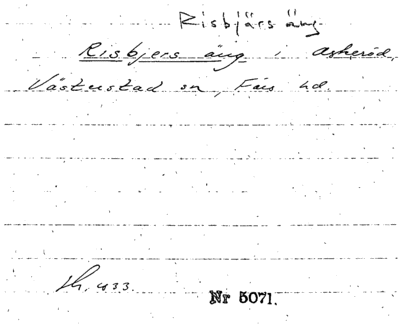 Risbjärs äng
Risbjers äng i Askeröd,
Västerstad sn, Färs hd.
Nr 5071.